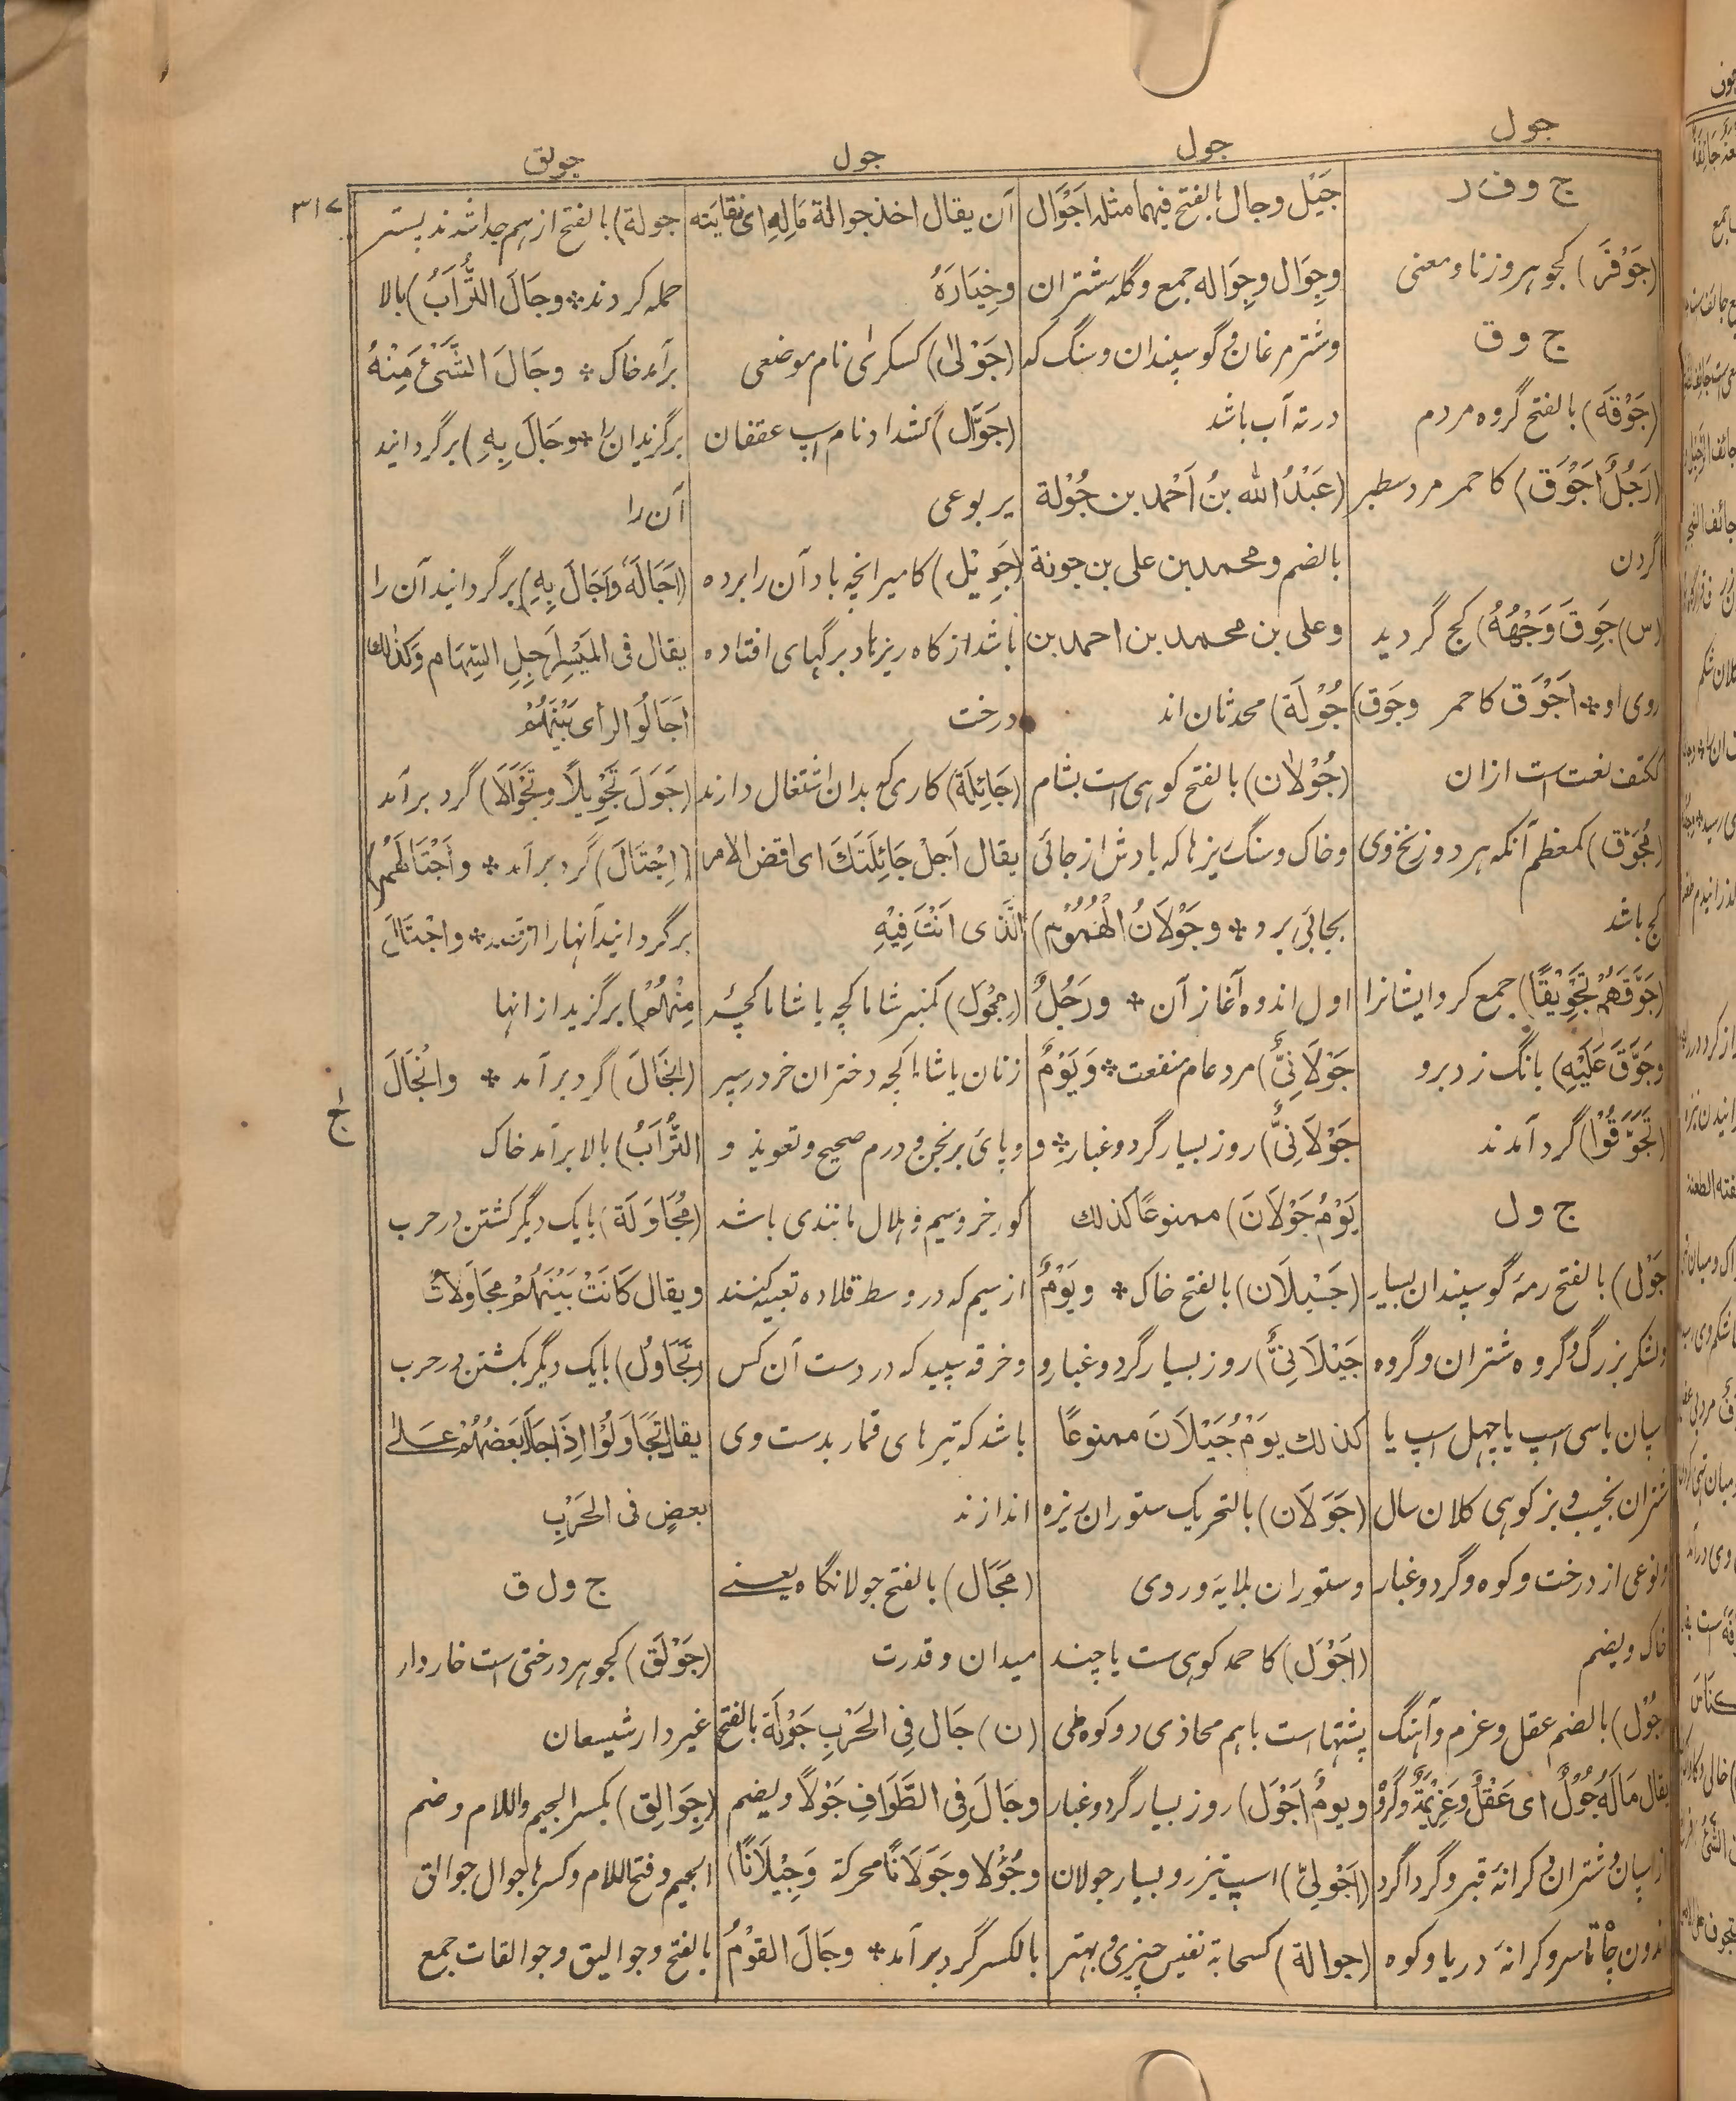 جول
جول
جول
جولق
۳۱۷
ج و ف ر
(جَوْفَر) کجوهر وزنا و معنی
ج و ق
(جَوْقَه) بالفتح گروه مردم
(رَجُلٌ اَجْوَق) کاحمر مرد سطبر
گردن
(س) جَوِقَ وَجْهُهُ) کج گردید
روی او * اَجْوَق کاحمر وجَوِق)
ککتف نعت است ازان
(مُجَوَّق) کمعظم آنکه هر دو زنخ وی
کج باشد
(جَوَّقَهُمْ تَجْوِیْقًا) جمع کرد ایشانرا
وجَوَّقَ عَلَیْهِ) بانگ زد برو
(تَجَوَّقُوْا) گرد آمدند
ج و ل
جَوْل) بالفتح رمهٔ گوسپندان بسیار
ولشکر بزرگ وگروه شتران و گروه
اسپان یا سی اسپ یا چهل اسپ یا
شتران نجیب و بز کوهی کلان سال
ونوعی از درخت و کوه و گرد و غبار
خاک ویضم
جُوْل) بالضم عقل و عزم و آهنگ
یقال مَالَهُ جُوْلٌ ای عَقْلٌ وَعَزِیْمَةٌ وگروه
از اسپان و شتران و کرانهٔ قبر و گرداگرد
اندرون چاه تا سر و کرانهٔ دریا و کوه
جَیْل وجال بالفتح فیهما مثله اَجْوَال
وجِوَال وجِوَاله جمع و گله شتران
وشتر مرغان و گوسپندان وسنگ که
در ته آب باشد
(عَبْدُ الله بنُ اَحْمد بن جُوْلة
بالضم و محمد بن علی بن جونة
وعلی بن محمد بن احمد بن
جُوْلَة) محدثان اند
(جُوْلان) بالفتح کوهی است بشام
وخاک و سنگ ریزها که بادش از جائی
بجائی برد * وجَوْلَانُ الْهُمُوْمِ)
اول اندوه آغاز آن * ورَجُلٌ
جَوْلَانِیٌّ) مرد عام منفعت * وَیَوْمٌ
جَوْلَانِیٌّ) روز بسیار گرد و غبار * و
یَوْمُ جَوْلَانَ) ممنوعًا کذلك
(جَیْلَان) بالفتح خاک * ویَوْمٌ
جَیْلَانِیٌّ) روز بسیار گرد و غبار و
کذلك یَوْمُ جَیْلَانَ ممنوعًا
(جَوَلَان) بالتحریک ستوران ریزه
وستوران بلایه و ردی
(اَجْوَل) کاحمد کوهی ست یا چند
پشتها است باهم محاذی دو کوه طی
ویومٌ اَجْوَل) روز بسیار گرد و غبار
(اَجْوَلِیّ) اسپ تیز رو بسیار جولان
(جوالة) کسحابة نفیس چیزی و بهتر
آن یقال اخذ جوالة مَالِهِ ای نقایته
وخِیَارَهُ
(جَوْلیٰ) کسکریٰ نام موضعی
(جَوَّال) کشداد نام اسپ عقفان
یربوعی
(جَوِیْل) کامیر انچه باد آن را برده
باشد از کاه ریزها و برگهای افتاده
درخت
(جَائِلَة) کاری که بدان اشتغال دارند
یقال اَجِلْ جَائِلَتَكَ ای اقض الامر
الَّذی اَنْتَ فِیْهِ
(مِجْوَل) کمنبر شاماکچه یا شاماکچهٔ
زنان یا شاماکچه دختران خرد و سپر
وپای برنجن و درم صحیح و تعویذ و
گورخر و سیم و هلال مانندی باشد
از سیم که در وسط قلاده تعبیه کنند
وخرقه سپید که در دست آن کس
باشد که تیرهای قمار بدست وی
اندازند
(مَجَال) بالفتح جولانگاه یعنے
میدان و قدرت
(ن) جَال فِی الحَرْبِ جَوْلَة بالفتح
وجَالَ فِی الطَّوَافِ جَوْلًا ویضم
وجُؤُلا وجَوَلَانًا محرکة وَجِیْلَانًا)
بالکسر گرد برآمد * وجَالَ القَوْمُ
جولة) بالفتح از هم جدا شدند پستر
حمله کردند * وجَالَ التُّرَابُ) بالا
برآمد خاک * وجَالَ الشَّیْءَ مِنْهُ
برگزید آن را * وجَالَ بِهِ) برگردانید
آن را
(اَجَالَهٗ وَاَجَالَ بِهِ) برگردانید آن را
یقال فی المَیْسِرِ اَجِلِ السِّهَام وَکذٰلك
اَجَالُوا الرأی بَیْنَهُمْ
(جَوَّلَ تَجْوِیلًا وتَجْوَالًا) گرد برآمد
(اِجْتَالَ) گرد برآمد * واجْتَالَهُمْ)
برگردانید آنها را * واجْتَالَ
مِنْهُمْ) برگزید از انها
(اِنْجَالَ) گرد برآمد * وانْجَالَ
التُّرَابُ) بالا برآمد خاک
(مُجَاوَلَة) بایک دیگر گشتن در حرب
ویقال کَانَتْ بَیْنَهُمْ مجَاوَلَاتٌ
(تَجَاوُل) بایک دیگر بگشتن در حرب
یقال تَجَاوَلُوْا اِذَا جَالَ بَعضُهُمْ عَلٰی
بعضٍ فی الحَرْبِ
ج و ل ق
(جَوْلَق) کجوهر درختی است خاردار
غیر دارشیشعان
(جِوَالِق) بکسر الجیم واللام وضم
الجیم وفتح اللام وکسرها جوال جوالق
بالفتح وجوالیق وجوالقات جمع